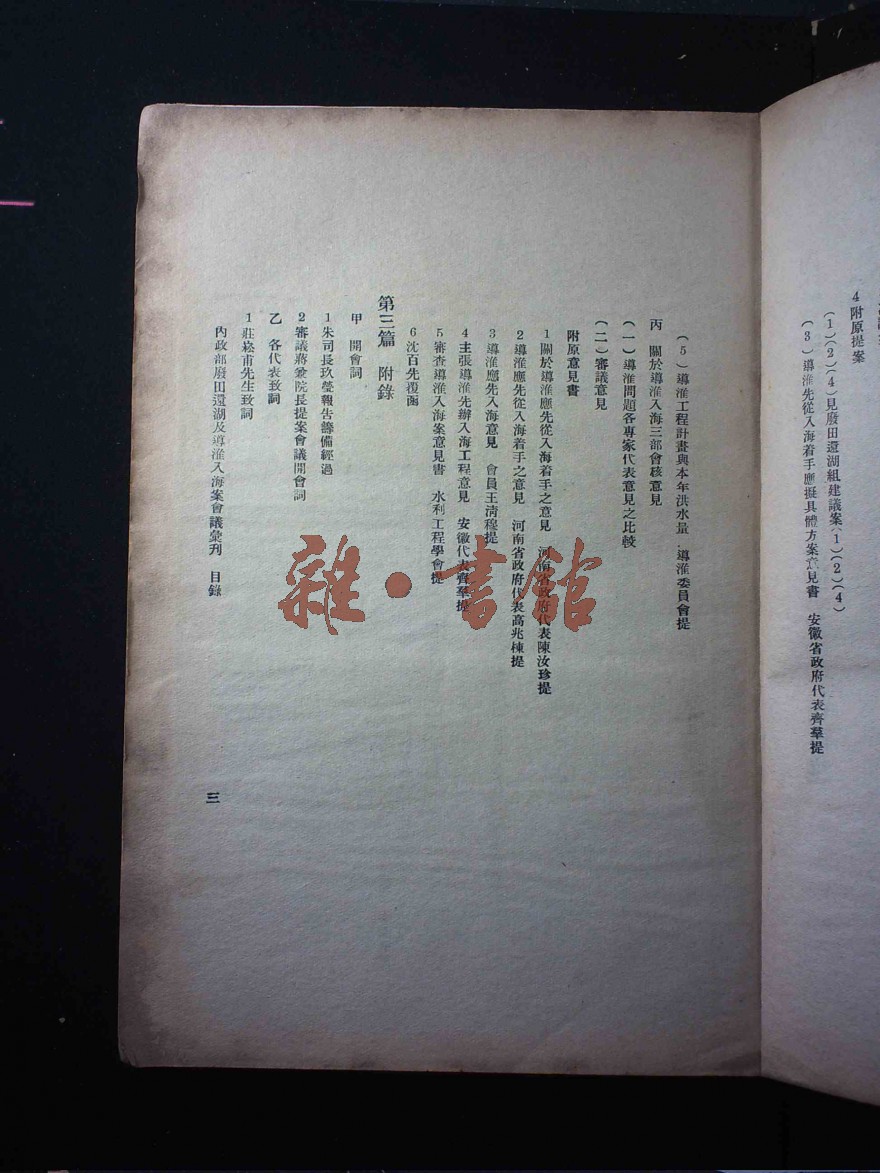 4 附原提案
(1)(2)(4)見廢田還湖組建議案(1)(2)(4)
(3)導淮先從入海着手應擬具體方案意見書 安徽省政府代表齊羣提
(5)導淮工程計畫與本年洪水量 導淮委員會提
丙 關於導淮入海三部會核意見
(一)導淮問題各專家代表意見之比較
(二)審議意見
附原意見書
1 關於導淮應先從入海着手之意見 河南省政府代表陳汝珍提
2 導淮應先從入海着手之意見 河南省政府代表高兆棟提
3 導淮應先入海意見 會員王清穆提
4 主張導淮先辦入海工程意見 安徽代表齊羣提
5 審查導淮入海案意見書 水利工程學會提
6 沈百先覆函
第三篇 附錄
甲 開會詞
1 朱司長玖瑩報告籌備經過
2 審議蔣兼院長提案會議開會詞
乙 各代表致詞
1 莊崧甫先生致詞
內政部廢田還湖及導淮入海案會議彙刊 目錄
三
雜·書館